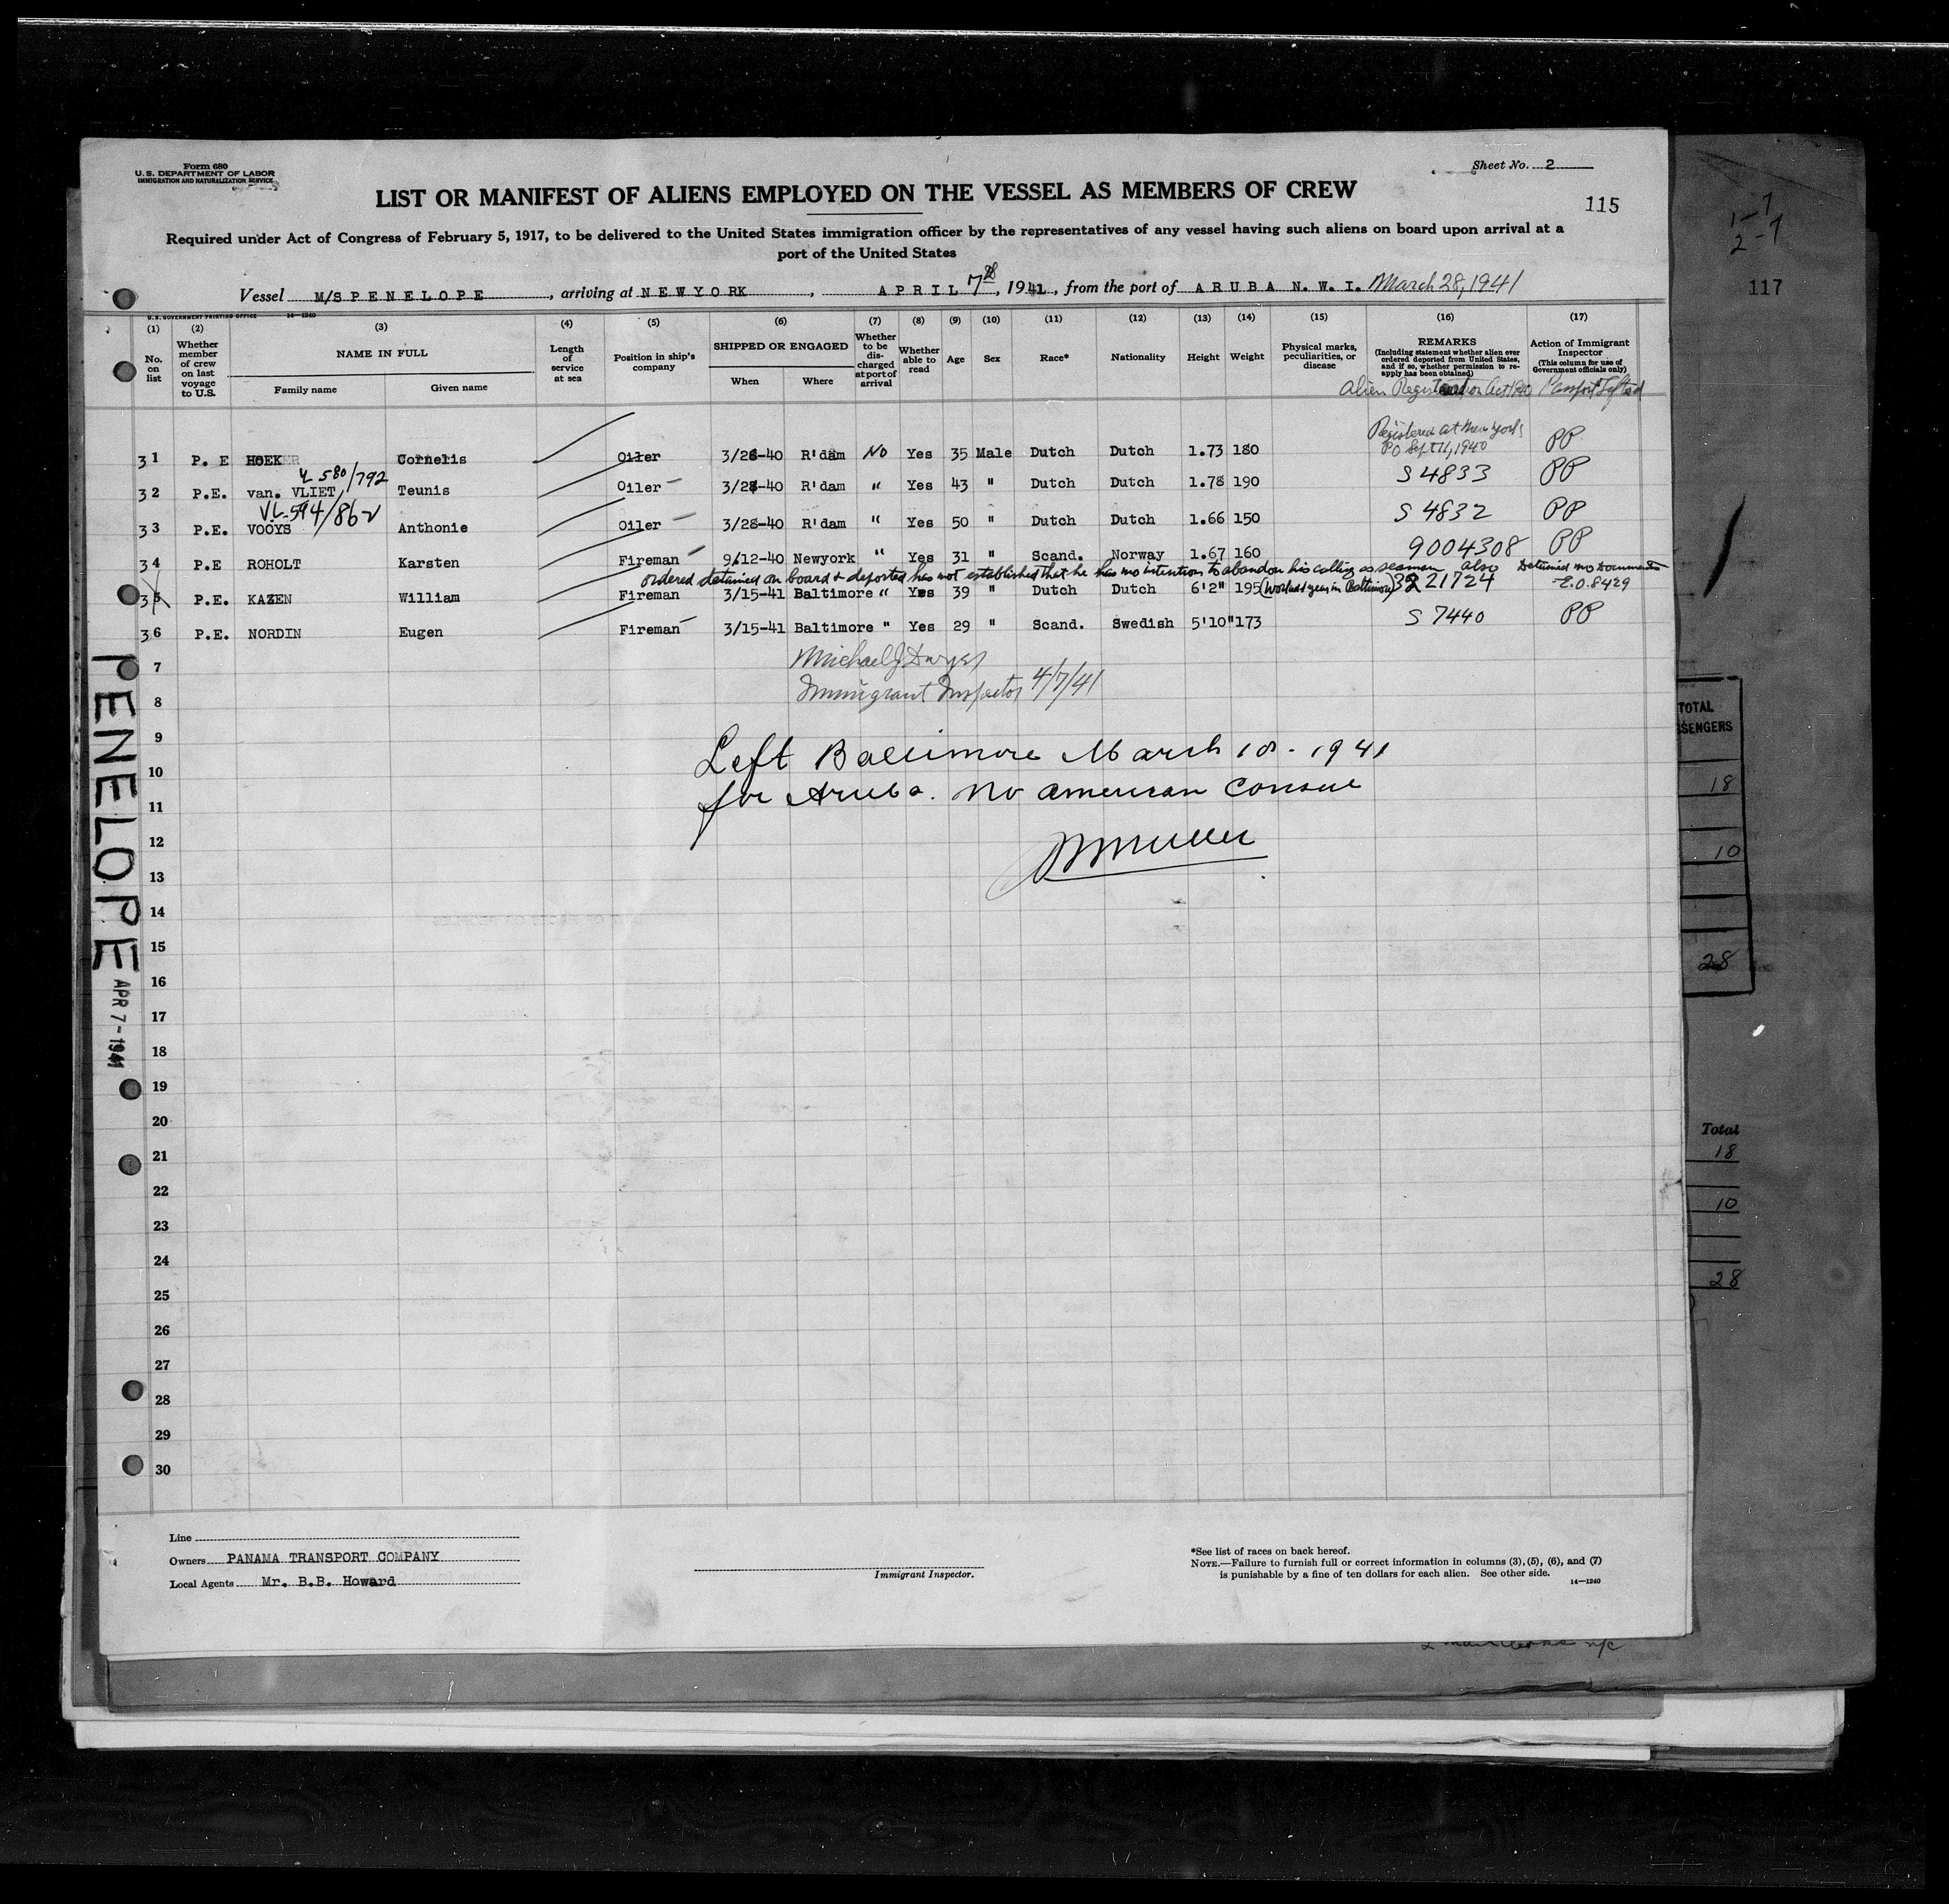 Form 680
U.S. DEPARTMENT OF LABOR
IMMIGRATION AND NATURALIZATION SERVICE
Sheet No. 2
LIST OR MANIFEST OF ALIENS EMPLOYED ON THE VESSEL AS MEMBERS OF CREW
115
Required under Act of Congress of February 5, 1917, to be delivered to the United States immigration officer by the representatives of any vessel having such aliens on board upon arrival at a
port of the United States
Vessel M/S PENELOPE, arriving at NEWYORK, APRIL 7th, 1941, from the port of ARUBA N.W.I. March 28, 1941
U.S. GOVERNMENT PRINTING OFFICE 14—1240
(1) (2) (3) (4) (5) (6) (7) (8) (9) (10) (11) (12) (13) (14) (15) (16) (17)
No. on list
Whether member of crew on last voyage to U.S.
NAME IN FULL
Family name
Given name
Length of service at sea
Position in ship's company
SHIPPED OR ENGAGED
When
Where
Whether to be discharged at port of arrival
Whether able to read
Age
Sex
Race*
Nationality
Height
Weight
Physical marks, peculiarities, or disease
REMARKS
(Including statement whether alien ever ordered deported from United States, and if so, whether permission to reapply has been obtained)
Action of Immigrant Inspector
(This column for use of Government officials only)
Alien Registration Act 1940 Passport Lifted
Registered at New York
PO Sept 11, 1940
31 P. E HOEK Cornelis Oiler 3/28-40 R'dam No Yes 35 Male Dutch Dutch 1.73 180 PP
VL 580/792
32 P.E. van. VLIET Teunis Oiler 3/28-40 R'dam " Yes 43 " Dutch Dutch 1.78 190 S 4833 PP
VL-594/862
33 P.E. VOOYS Anthonie Oiler 3/28-40 R'dam " Yes 50 " Dutch Dutch 1.66 150 S 4832 PP
34 P.E ROHOLT Karsten Fireman 9.12-40 Newyork " Yes 31 " Scand. Norway 1.67 160 9004308 PP
ordered detained on board & deported has not established that he has no intention to abandon his calling as seaman also Detained no Documents
35 P.E. KAZEN William Fireman 3/15-41 Baltimore " Yes 39 " Dutch Dutch 6'2" 195 (Worked 1 year in Baltimore) 3221724 E.O. 8429
36 P.E. NORDIN Eugen Fireman 3/15-41 Baltimore " Yes 29 " Scand. Swedish 5'10" 173 S 7440 PP
Michael J Dwyer
Immigrant Inspector 4/7/41
Left Baltimore March 18-1941
for Aruba. No American Consul
7
8
9
10
11
12
13
14
15
16
17
18
19
20
21
22
23
24
25
26
27
28
29
30
PENELOPE
APR 7-1941
Line
Owners PANAMA TRANSPORT COMPANY
Local Agents Mr. B.B. Howard
Immigrant Inspector.
*See list of races on back hereof.
NOTE.—Failure to furnish full or correct information in columns (3), (5), (6), and (7)
is punishable by a fine of ten dollars for each alien. See other side.
14—1240
1-7
2-7
117
TOTAL
18
10
28
Total
18
10
28